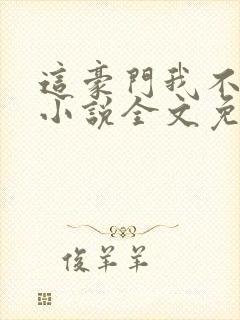 這豪門我不
小說全文免
俊羊羊